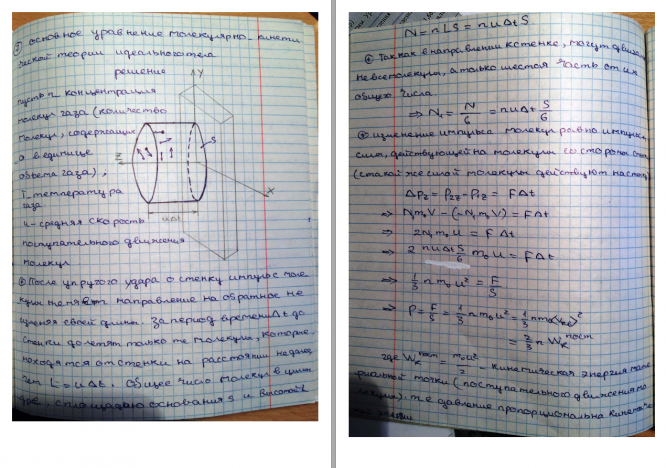 ① основное уравнение молекулярно-кинети
ческой теории идеального газа
решение
пусть n концентрация
молекул газа (количество
молекул, содержащих
а в единице
объема газа),
T-температура
газа
u-средняя скорость
поступательного движения
молекул
Y
S
Z
X
uΔt
После упругого удара о стенку импульс моле
кулы меняет направление на обратное не
своей длины. За период времени Δt до
стенки долетят только те молекулы, которые
находятся от стенки на расстоянии не далее,
чем L = uΔt. Общее число молекул в цилин
дре с площадью основания S и высотой L
N = nLS = nuΔtS
Так как в направлении к стенке, могут двига
не все молекулы, а только шестая часть от их
общего числа
⇒ N₁ = N/6 = nuΔt S/6
изменение импульса молекул равно импульсу
сил, действующей на молекулы со стороны
(с такой же силой молекулы действуют на
Δp_z = p₂z - p₁z = FΔt
⇒ N₁m₀V - (-N₁m₀V) = FΔt
⇒ 2N₁m₀u = FΔt
⇒ 2 nuΔtS/6 m₀u = FΔt
⇒ 1/3 n m₀u² = F/S
⇒ P = F/S = 1/3 n m₀u² = 1/3 n m₀
= 2/3 n W_к^пост
где W_к^пост = m₀u²/2 - кинетическая энергия мате
риальной точки (поступательного движения мо
лекулы). т.е давление пропорциональна кинетиче
ской энергии